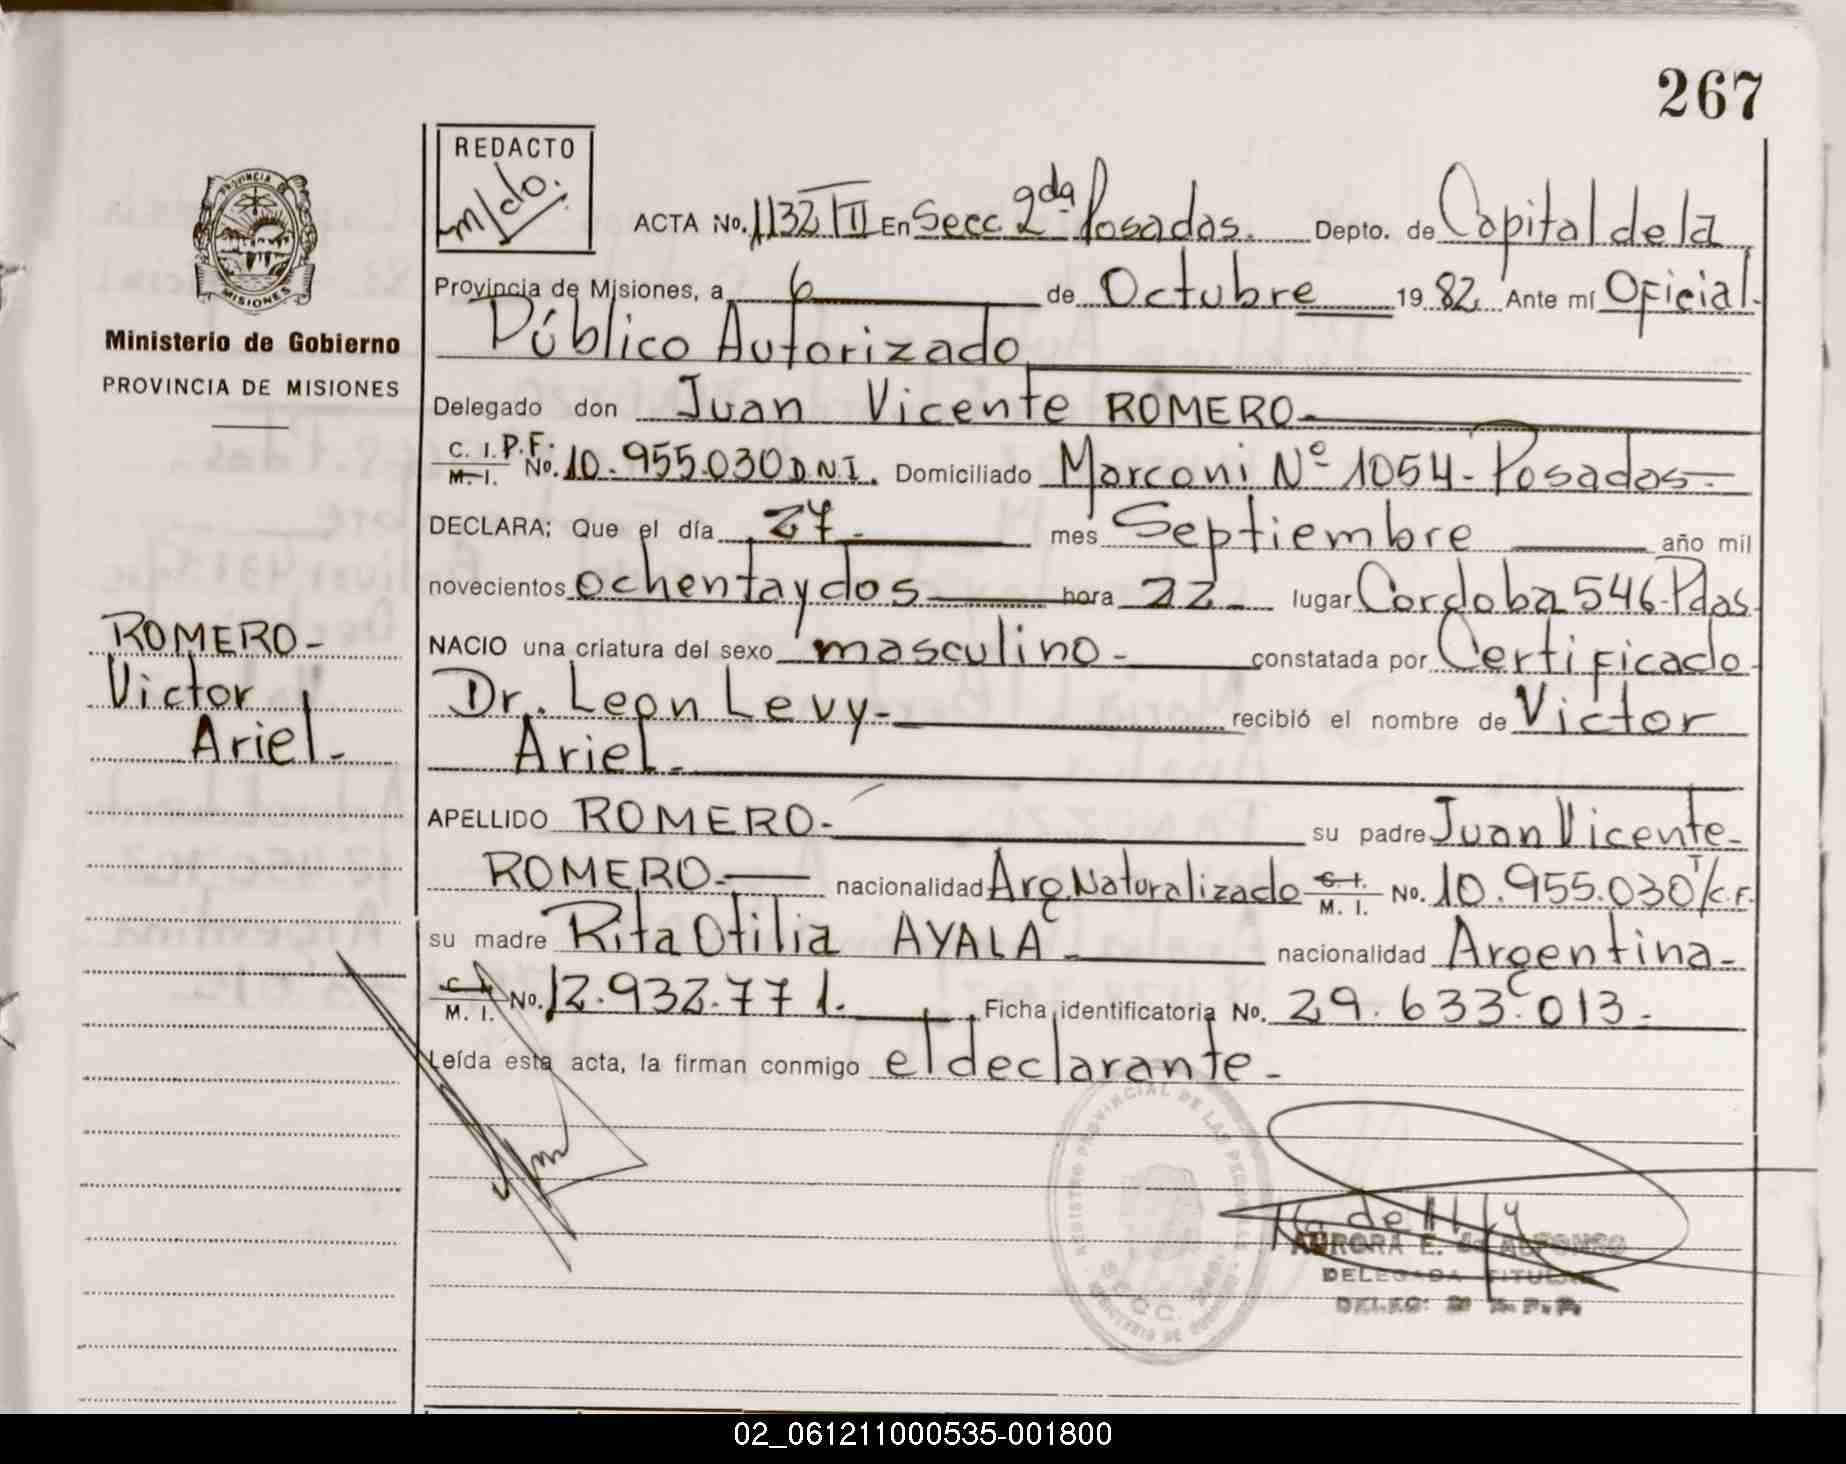 267
REDACTO
m/do.
ACTA No. 1132 TII En Secc 2da Posadas. Depto. de Capital de la
Provincia de Misiones, a 6 de Octubre 19 82 Ante mí Oficial
Público Autorizado
PROVINCIA DE
MISIONES
Ministerio de Gobierno
PROVINCIA DE MISIONES
Delegado don Juan Vicente ROMERO-
C. I. P.F. M. I. No. 10.955.030 D.N.I. Domiciliado Marconi Nº 1054- Posadas-
DECLARA: Que el día 27- mes Septiembre año mil
novecientos ochentaydos hora 22- lugar Cordoba 546-Pdas.
NACIO una criatura del sexo masculino- constatada por Certificado
Dr. Leon Levy- recibió el nombre de Victor
Ariel.-
ROMERO-
Victor
Ariel.-
APELLIDO ROMERO- su padre Juan Vicente-
ROMERO- nacionalidad Arg. Naturalizado C. I. M. I. No. 10.955.030 T/C.F.
su madre Rita Otilia AYALA- nacionalidad Argentina-
C. I. M. I. No. 12.932.771. Ficha identificatoria No. 29.633.013-
Leída esta acta, la firman conmigo el declarante-
REGISTRO PROVINCIAL DE LAS PERSONAS
SECC. 2da.
AURORA E. de ALFONSO
DELEGADA TITULAR
DELEG: 2ª R.P.P.
02_061211000535-001800